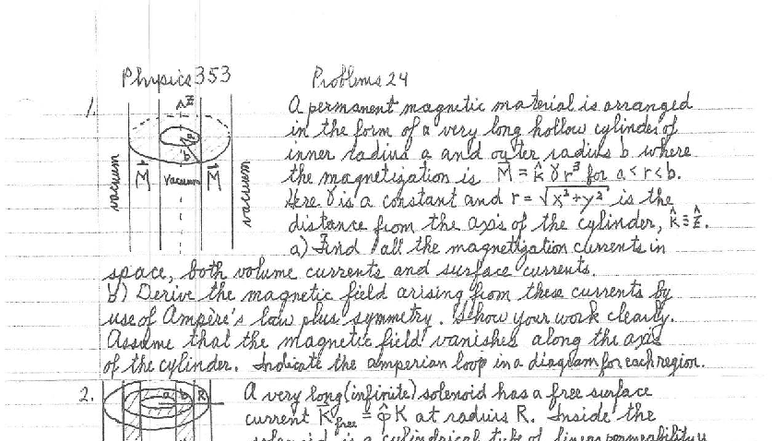 Physics 353 Problems 24
1. A permanent magnetic material is arranged
in the form of a very long hollow cylinder of
inner radius a and outer radius b where
the magnetization is M⃗ = k̂ γ r³ for a < r < b.
Here γ is a constant and r = √(x² + y²) is the
distance from the axis of the cylinder, k̂ ≡ ẑ.
a) Find all the magnetization currents in
space, both volume currents and surface currents.
b) Derive the magnetic field arising from these currents by
use of Ampère's law plus symmetry. Show your work clearly.
Assume that the magnetic field vanishes along the axis
of the cylinder. Indicate the amperian loop in a diagram for each region.
ẑ
a
b
vacuum M⃗ vacuum M⃗ vacuum
2. A very long (infinite) solenoid has a free surface
current K⃗free = φ̂ K at radius R. Inside the
solenoid is a cylindrical tube of linear permeability
a b R